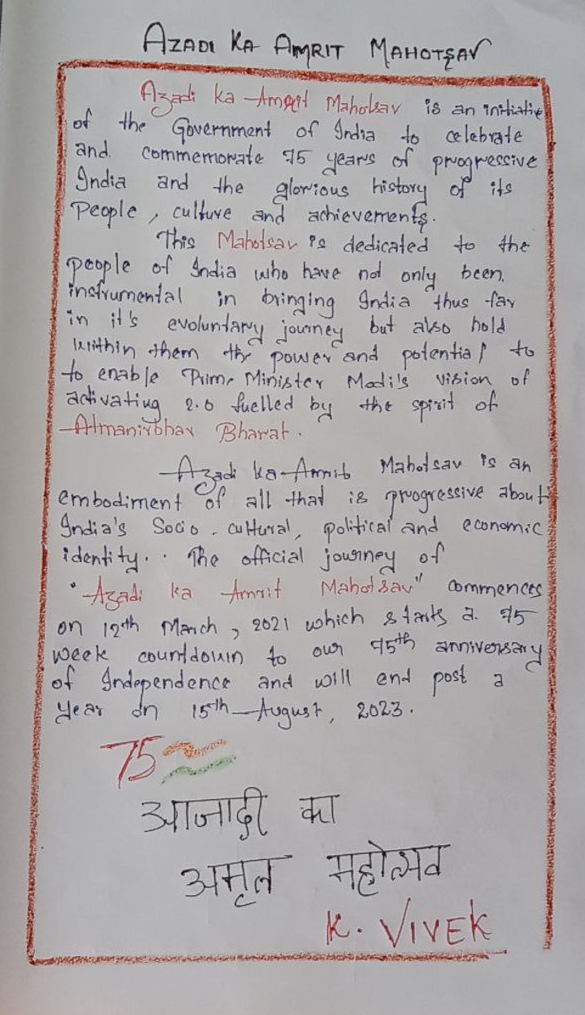 AZADI KA AMRIT MAHOTSAV
Azadi ka Amrit Mahotsav is an initiative
of the Government of India to celebrate
and commemorate 75 years of progressive
India and the glorious history of its
People, culture and achievements.
This Mahotsav is dedicated to the
people of India who have not only been
instrumental in bringing India thus far
in it's evoluntary journey but also hold
within them the power and potential to
to enable Prime Minister Modi's vision of
activating 2.0 fuelled by the spirit of
Atmanirbhav Bharat.
Azadi ka Amrit Mahotsav is an
embodiment of all that is progressive about
India's Socio-cultural, political and economic
identity.. The official journey of
"Azadi ka Amrit Mahotsav" commences
on 12th March, 2021 which starts a 75
week countdown to our 75th anniversary
of Independence and will end post a
year on 15th August, 2023.
75
आजादी का
अमृत महोत्सव
K. VIVEK